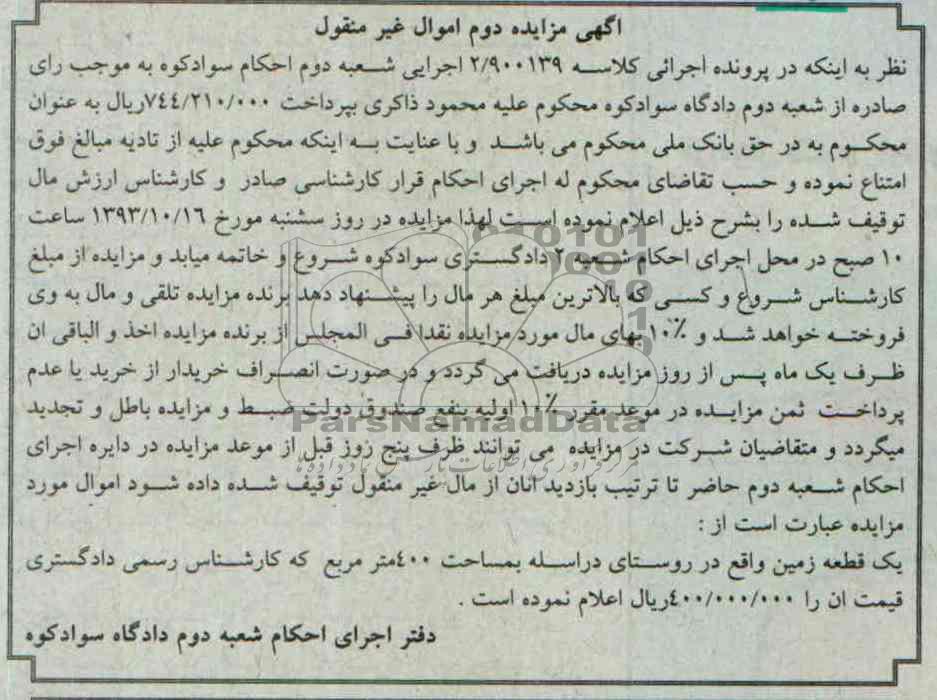 اگهی مزایده دوم اموال غیر منقول
نظر به اینکه در پرونده اجرائی کلاسه ۲/۹۰۰۱۳۹ اجرایی شعبه دوم احکام سوادکوه به موجب رای
صادره از شعبه دوم دادگاه سوادکوه محکوم علیه محمود ذاکری بپرداخت ۷٤٤/۲۱۰/۰۰۰ریال به عنوان
محکوم به در حق بانک ملی محکوم می باشد و با عنایت به اینکه محکوم علیه از تادیه مبالغ فوق
امتناع نموده و حسب تقاضای محکوم له اجرای احکام قرار کارشناسی صادر و کارشناس ارزش مال
توقیف شده را بشرح ذیل اعلام نموده است لهذا مزایده در روز سشنبه مورخ ۱۳۹۳/۱۰/۱٦ ساعت
۱۰ صبح در محل اجرای احکام شعبه ۲ دادگستری سوادکوه شروع و خاتمه میابد و مزایده از مبلغ
کارشناس شروع و کسی که بالاترین مبلغ هر مال را پیشنهاد دهد برنده مزایده تلقی و مال به وی
فروخته خواهد شد و ۱۰٪ بهای مال مورد مزایده نقدا فی المجلس از برنده مزایده اخذ و الباقی ان
ظرف یک ماه پس از روز مزایده دریافت می گردد و در صورت انصراف خریدار از خرید یا عدم
پرداخت ثمن مزایده در موعد مقرر ۱۰٪ اولیه بنفع صندوق دولت ضبط و مزایده باطل و تجدید
ParsNamadData
میگردد و متقاضیان شرکت در مزایده می توانند ظرف پنج روز قبل از موعد مزایده در دایره اجرای
احکام شعبه دوم حاضر تا ترتیب بازدید انان از مال غیر منقول توقیف شده داده شود اموال مورد
مزایده عبارت است از :
یک قطعه زمین واقع در روستای دراسله بمساحت ٤۰۰متر مربع که کارشناس رسمی دادگستری
قیمت ان را ٤۰۰/۰۰۰/۰۰۰ریال اعلام نموده است .
دفتر اجرای احکام شعبه دوم دادگاه سوادکوه